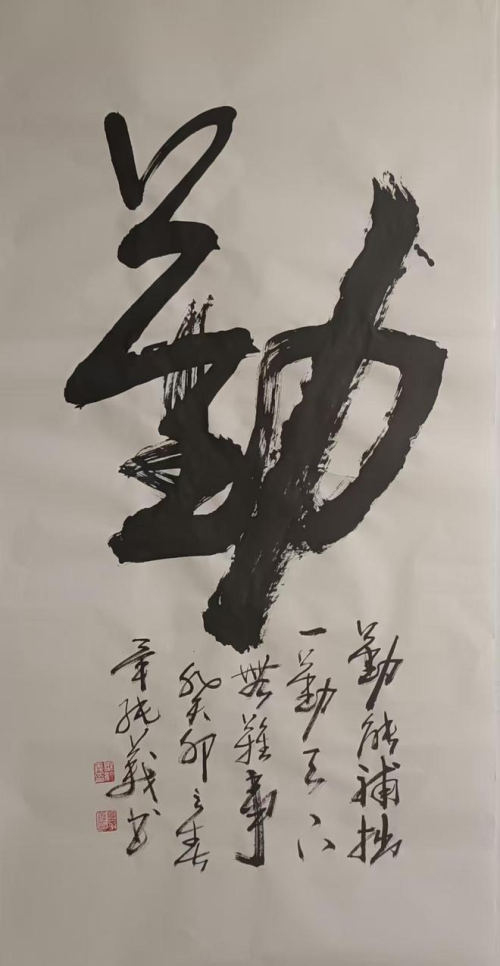 勤
勤能補拙
一勤天下
無難事
癸卯之春
章純義書